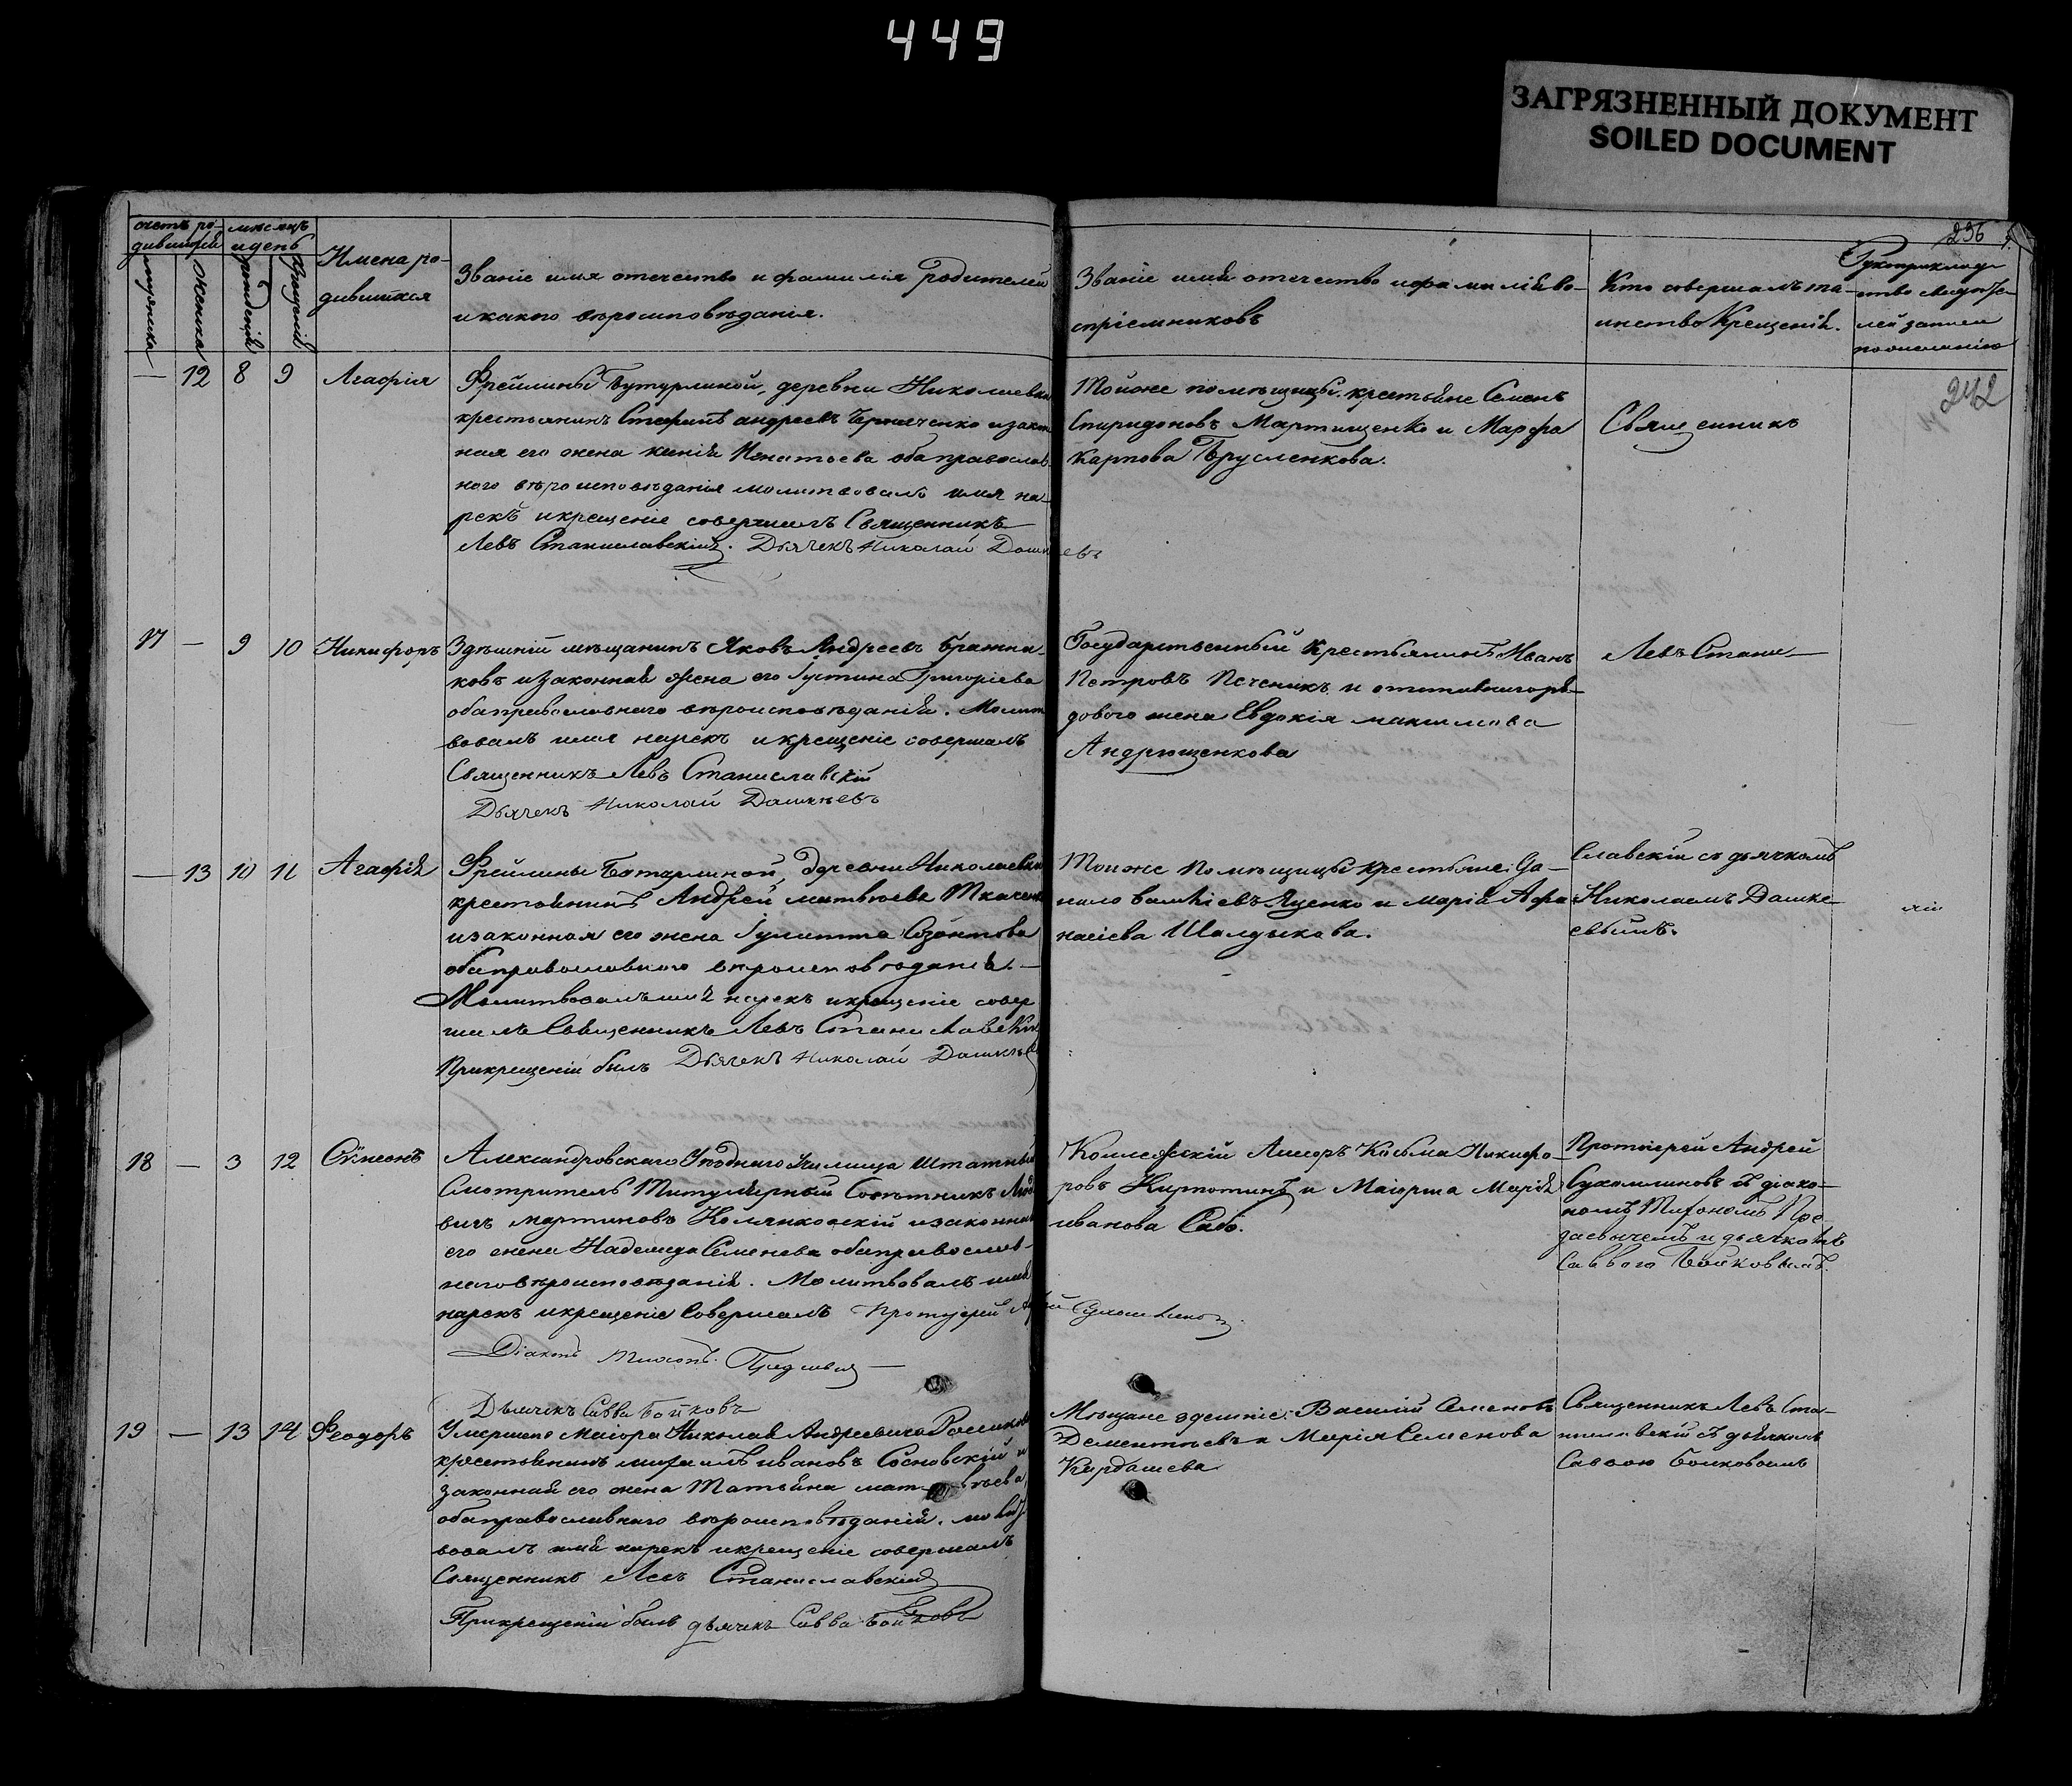 449
ЗАГРЯЗНЕННЫЙ ДОКУМЕНТ
SOILED DOCUMENT
236
счетъ ро-
дившихся
мѣсяцъ
и день
мужеска
женска
рожденія
крещенія
Имена ро-
дившихся
Званіе имя отечество и фамилія родителей
и какого вѣроисповѣданія.
Званіе имя отечество и фамилія во-
спріемниковъ
Кто совершалъ та-
инство Крещенія.
Рукоприклад-
ство свидѣте-
лей записи
по желанію
242
— 12 8 9 Агафія
Фрейлины Бутурлиной, деревни Николаевки
крестьянинъ Стефанъ андреевъ и закон
ная его жена Игнатьева оба православ
ного вѣроисповѣданія молитвовалъ имя на-
рекъ и крещеніе совершалъ Священникъ
Левъ Станиславскій. Дьячекъ Николай Дашкевъ
Тойже помѣщицы крестьяне Семенъ
Спиридоновъ Мартищенко и Марфа
Карпова Брусленкова.
Священникъ
17 — 9 10 Никифоръ
Здѣшній мѣщанинъ Яковъ Андреевъ Бражни-
ковъ и законная жена его Іустина Григоріева
оба православнаго вѣроисповѣданія. Молит
вовалъ имя нарекъ и крещеніе совершалъ
Священникъ Левъ Станиславскій
Дьячекъ Николай Дашкевъ
Государственный Крестьянинъ Иванъ
Петровъ Печеникъ и отставнаго ря-
дового жена Евдокія максимова
Андрющенкова
Левъ Стани-
— 13 10 11 Агафія
Фрейлины Батурлиной, деревни Николаевки
крестьянинъ Андрей матвѣевъ Ткаченко
и законная его жена Іулитта Созонтова
оба православного вѣроисповѣданія. —
Молитвовалъ имя нарекъ и крещеніе совер
шилъ Священникъ Левъ Станиславскій
При крещеніи былъ Дьячекъ Николай Дашкевъ
Тойже Помѣщицы крестьяне: Да-
нило Яценко и Марія Афа
насіева Шалдыкова.
славскій съ дьячкомъ
Николаемъ Дашке-
евымъ.
18 — 3 12 Сѵмеонъ
Александровскаго Уѣзднаго Училища Штатный
Смотритель Титулярный Совѣтникъ Люд
вигъ мартиновъ и законная
его жена Надежда Семенова оба православ-
наго вѣроисповѣданія. Молитвовалъ имя
нарекъ и крещеніе Совершалъ Протоіерей Андрей Сухомлиновъ
Діаконъ
Дьячекъ Савва Бойковъ
Коллежскій Асесоръ Косьма Никифо-
ровъ Кирпотинъ и Маіорша Марія
иванова Сабо.
Протоіерей Андрей
Сухомлиновъ съ діако-
номъ
и дьячкомъ
Саввою Бойковымъ.
19 — 13 14 Феодоръ
Умершаго Маіора Николая Андреевича
крестьянинъ михаилъ ивановъ Сосновскій и
законная его жена Татьяна матвѣева,
оба православнаго вѣроисповѣданія. молит
вовалъ имя нарекъ и крещеніе совершалъ
Священникъ Левъ Станиславскій
При крещеніи былъ дьячекъ Савва Бойковъ
Мѣщане здешніе: Василій Семеновъ
Дементьевъ и Марія Семенова
Кардашева.
Священникъ Левъ Ста-
ниславскій съ дьячкомъ
Саввою Бойковымъ